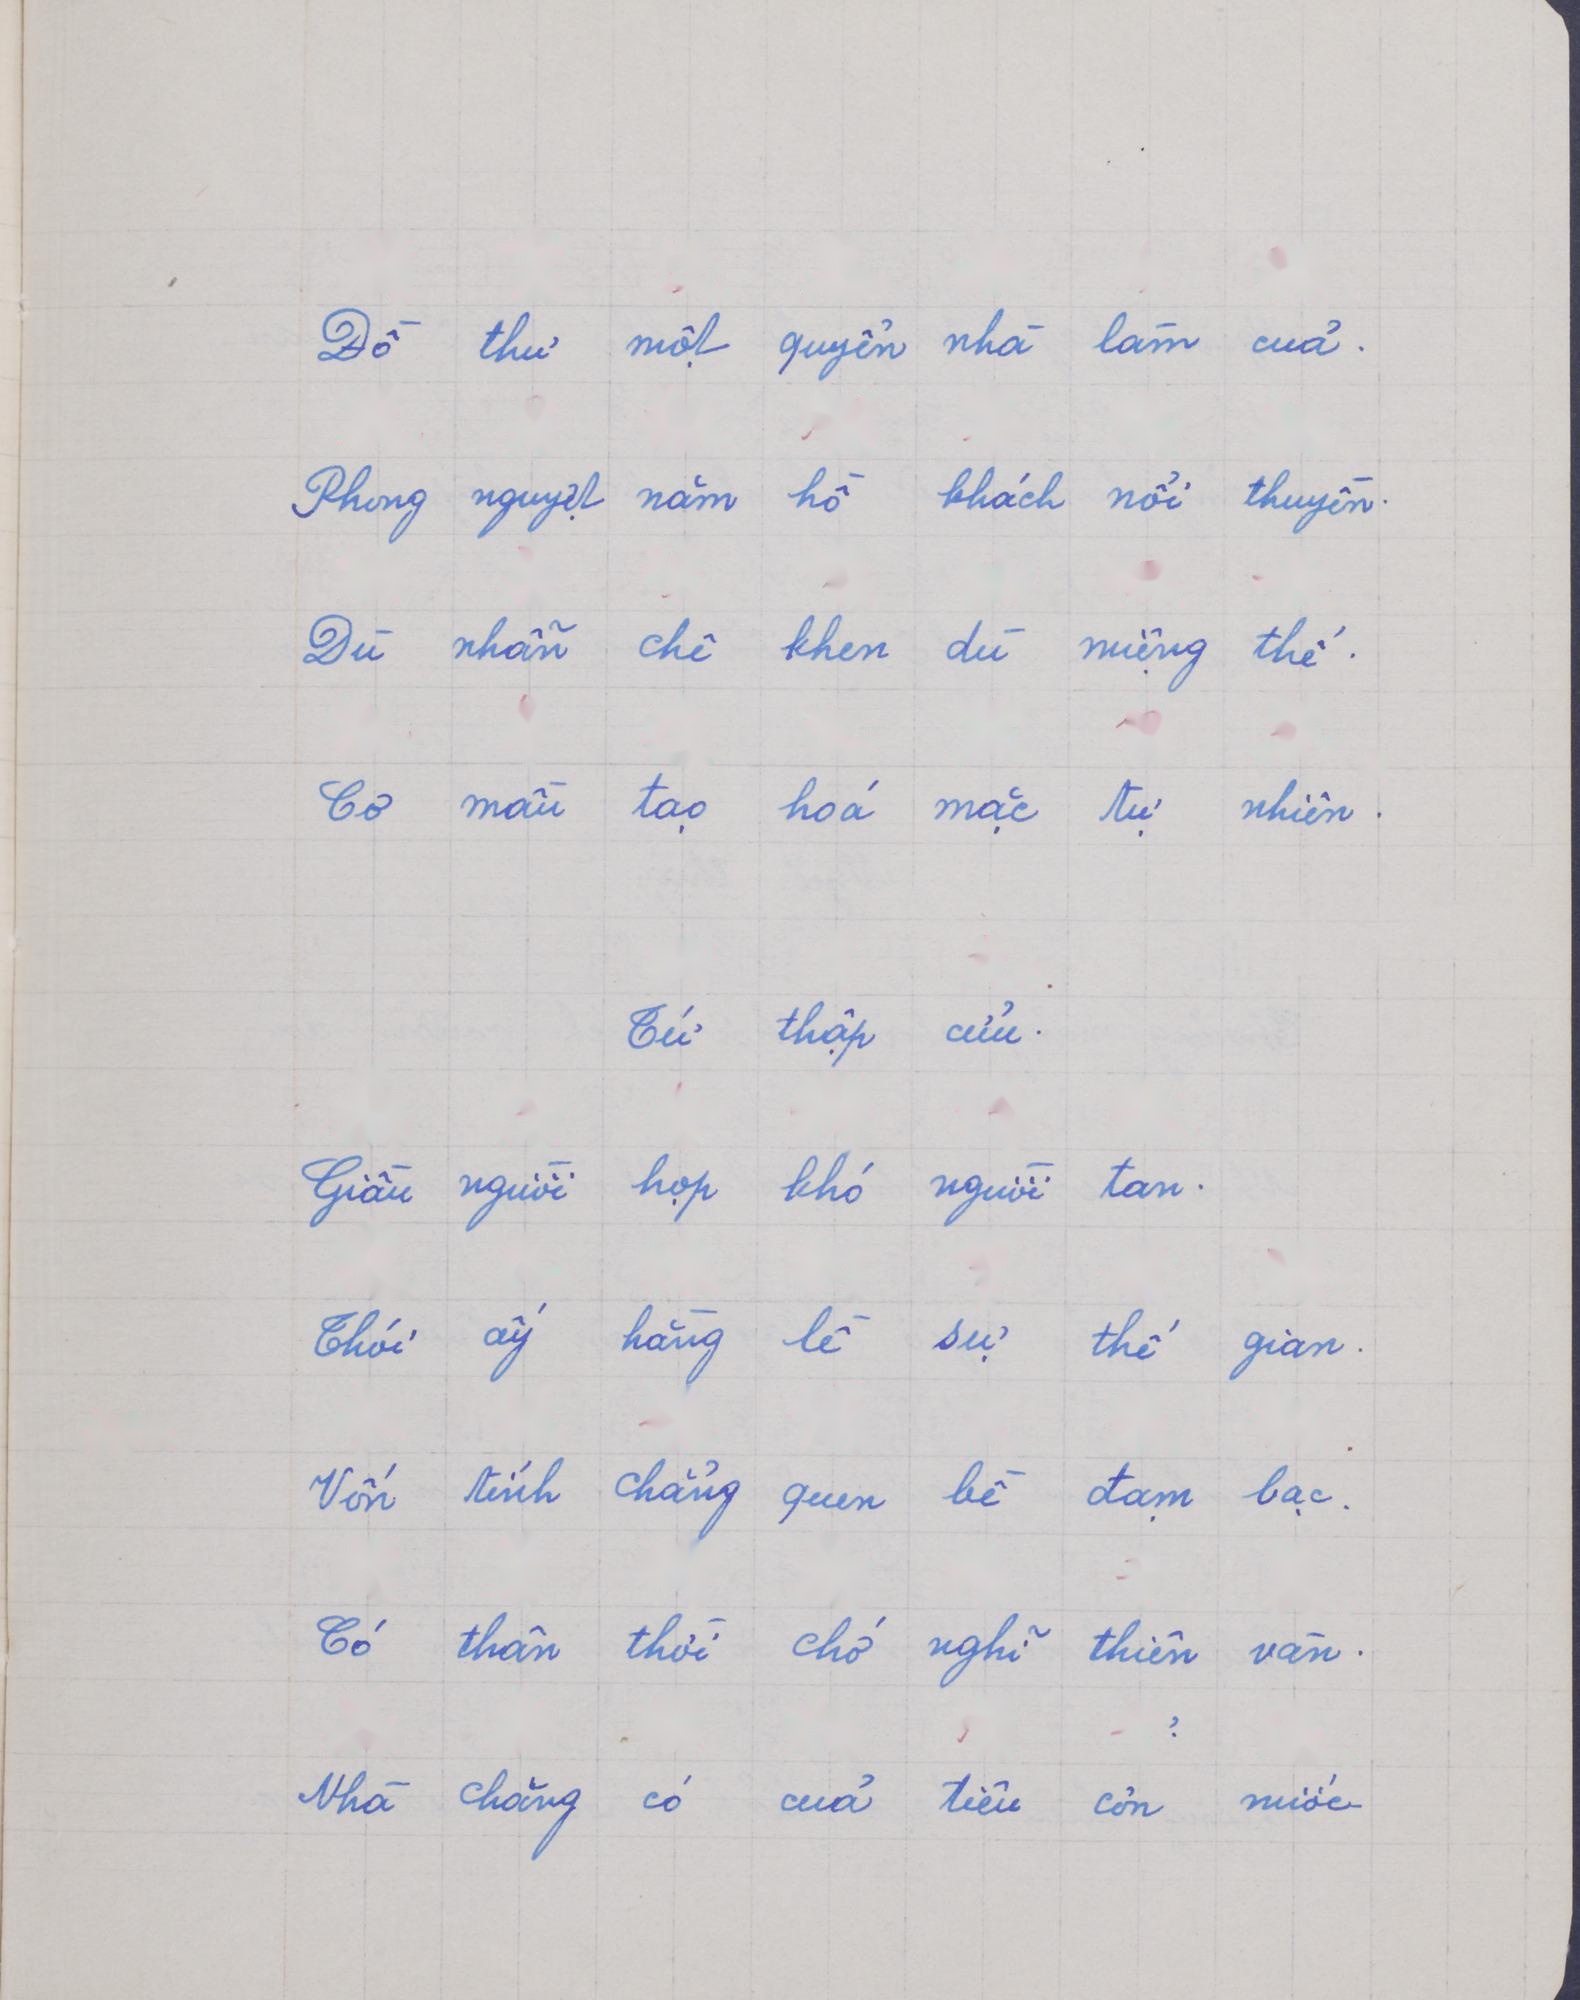 Đồ thư một quyển nhà làm cuả.
Phong nguyệt năm hồ khách nổi thuyền.
Dù nhẫn chê khen dù miệng thế.
Cơ mầu tạo hoá mặc tự nhiên.
Tứ thập cửu.
Giầu người họp khó người tan.
Thói ấy hằng lề sự thế gian.
Vốn tính chẳng quen bề đạm bạc.
Có thân thời chớ nghĩ thiên vàn.
?
Nhà chăng có cuả tiêu còn nước